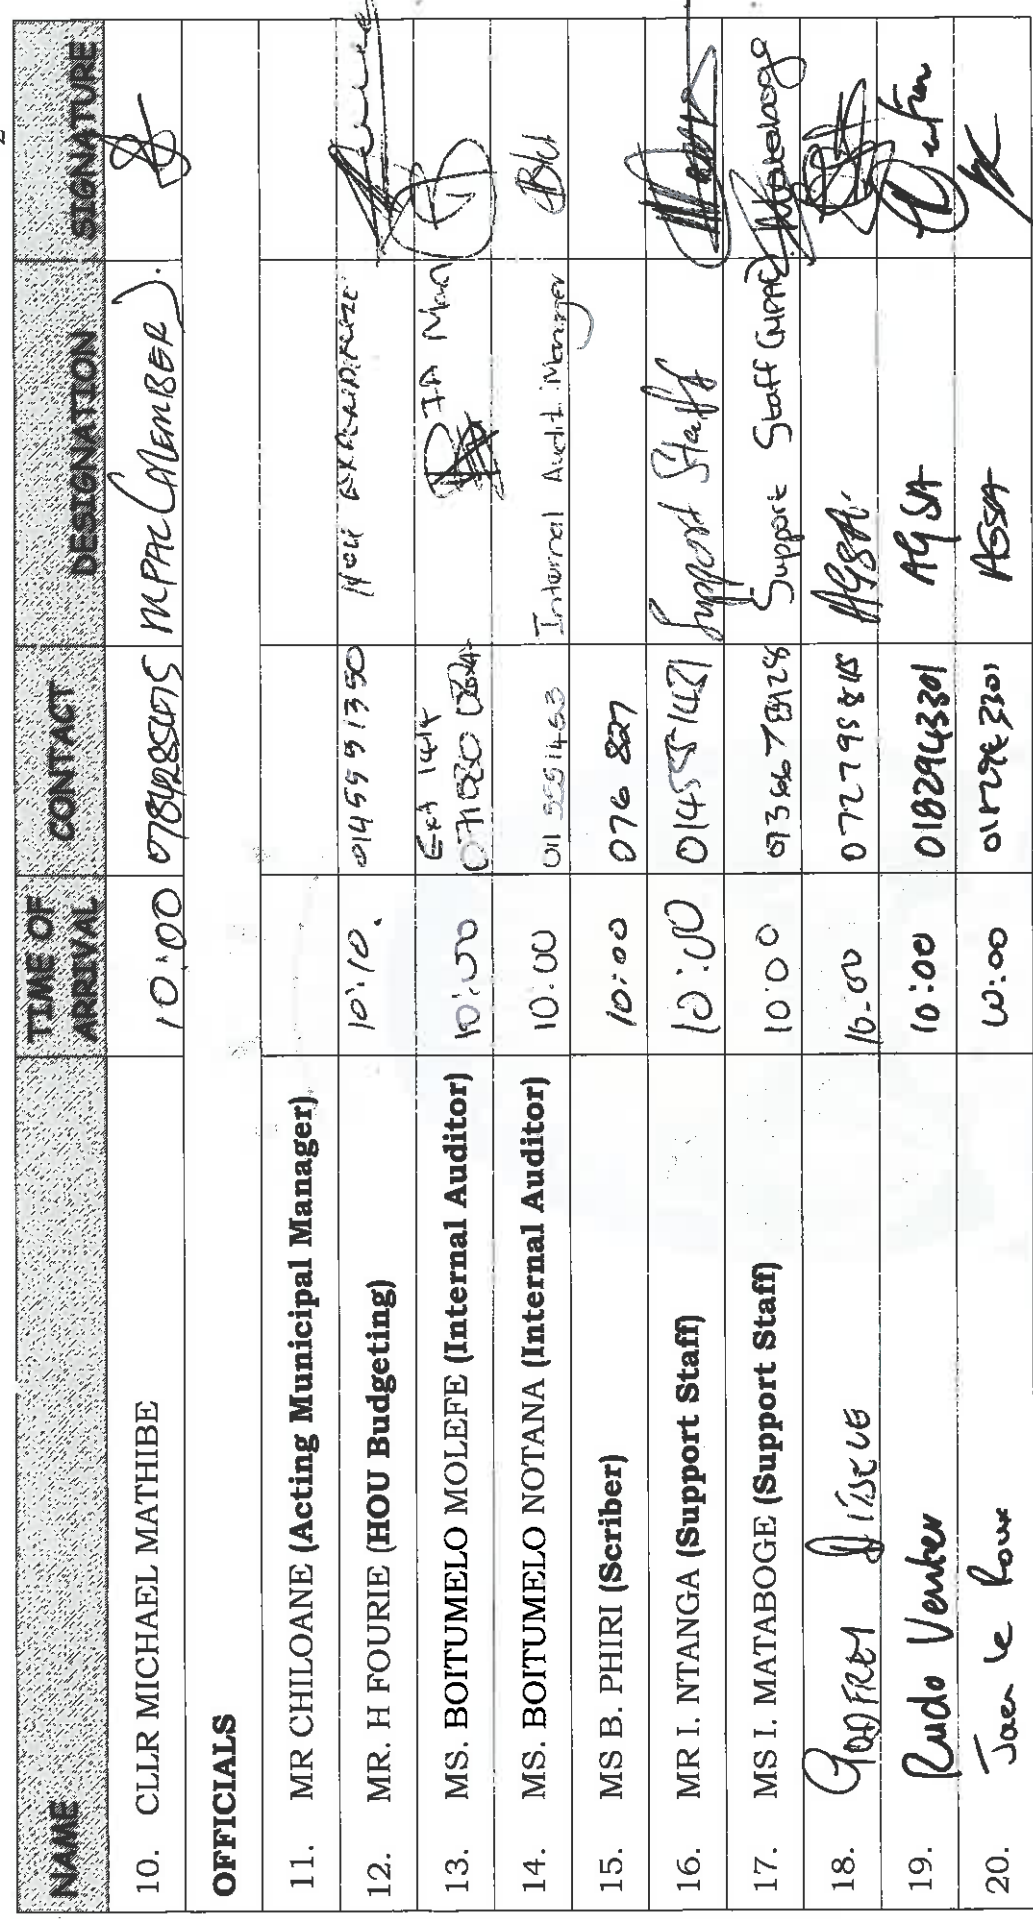 NAME TIME OF ARRIVAL CONTACT DESIGNATION SIGNATURE
10. CLLR MICHAEL MATHIBE 10:00 0784285475 MPAC (MEMBER).
OFFICIALS
11. MR CHILOANE (Acting Municipal Manager)
12. MR. H FOURIE (HOU Budgeting) 10:10. 0145551350 HOU
13. MS. BOITUMELO MOLEFE (Internal Auditor) 10:00 Ext 1414 IA Man
14. MS. BOITUMELO NOTANA (Internal Auditor) 10:00 011 5551463 Internal Audit Manager
15. MS B. PHIRI (Scriber) 10:00 076 827
16. MR I. NTANGA (Support Staff) 10:00 0145551421 Support Staff
17. MS I. MATABOGE (Support Staff) 10:00 Support Staff (MPAC) Mataboge
18. GODFREY 10-00 AGSA
19. Rudo Venter 10:00 0182943301 AGSA
20. le Roux 10:00 AGSA